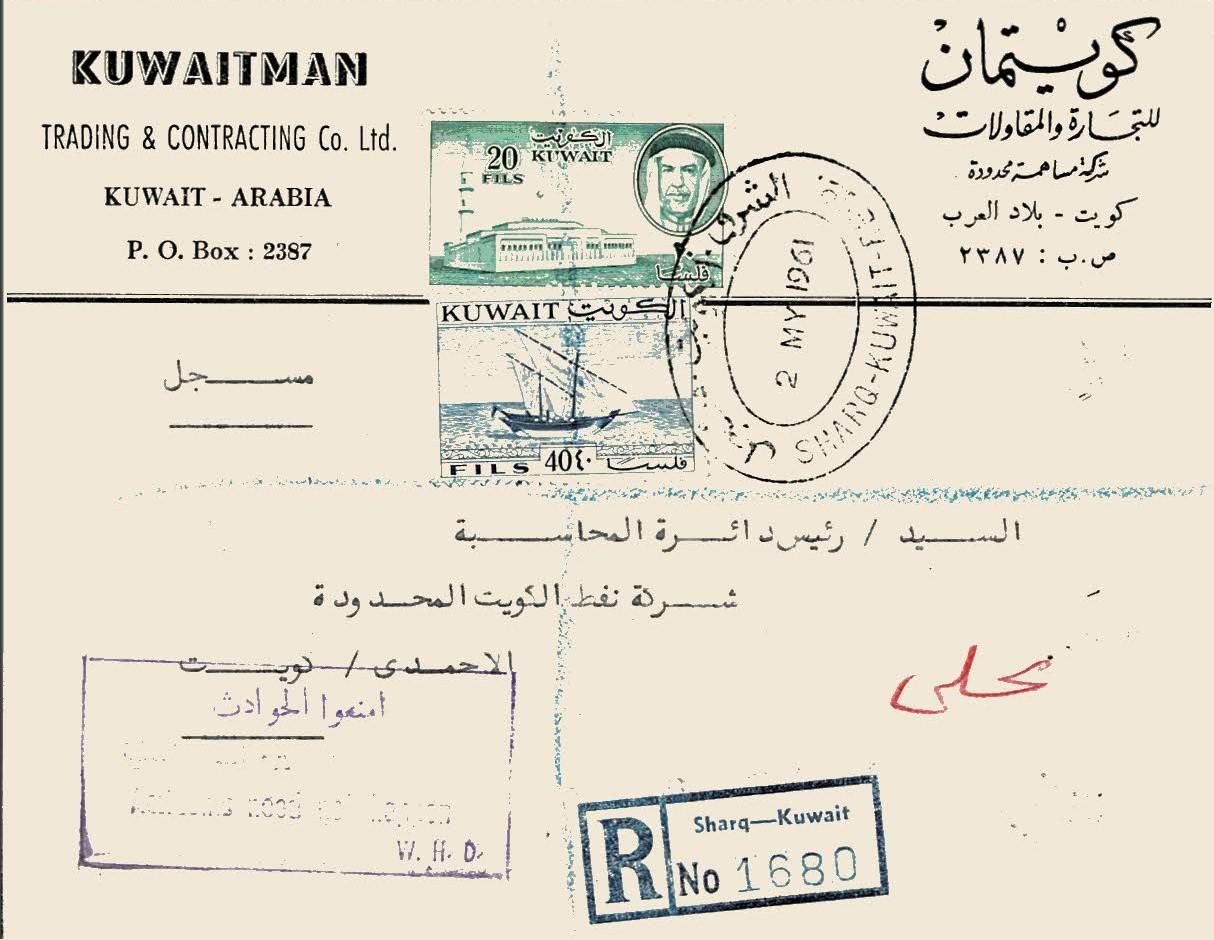 KUWAITMAN
TRADING & CONTRACTING Co. Ltd.
KUWAIT - ARABIA
P. O. Box : 2387
كويتمان
للتجارة والمقاولات
شركة مساهمة محدودة
كويت - بلاد العرب
ص.ب : ٢٣٨٧
الكويت
20 KUWAIT
FILS
فلسا
KUWAIT الكويت
FILS 40 ٤٠ فلسا
الشرق
2 MY 1961
SHARQ-KUWAIT
مسجل
السيد / رئيس دائرة المحاسبة
شركة نفط الكويت المحدودة
الاحمدى / كويت
امنعوا الحوادث
Accidents need not happen
W. H. D.
محلى
R
Sharq—Kuwait
No 1680